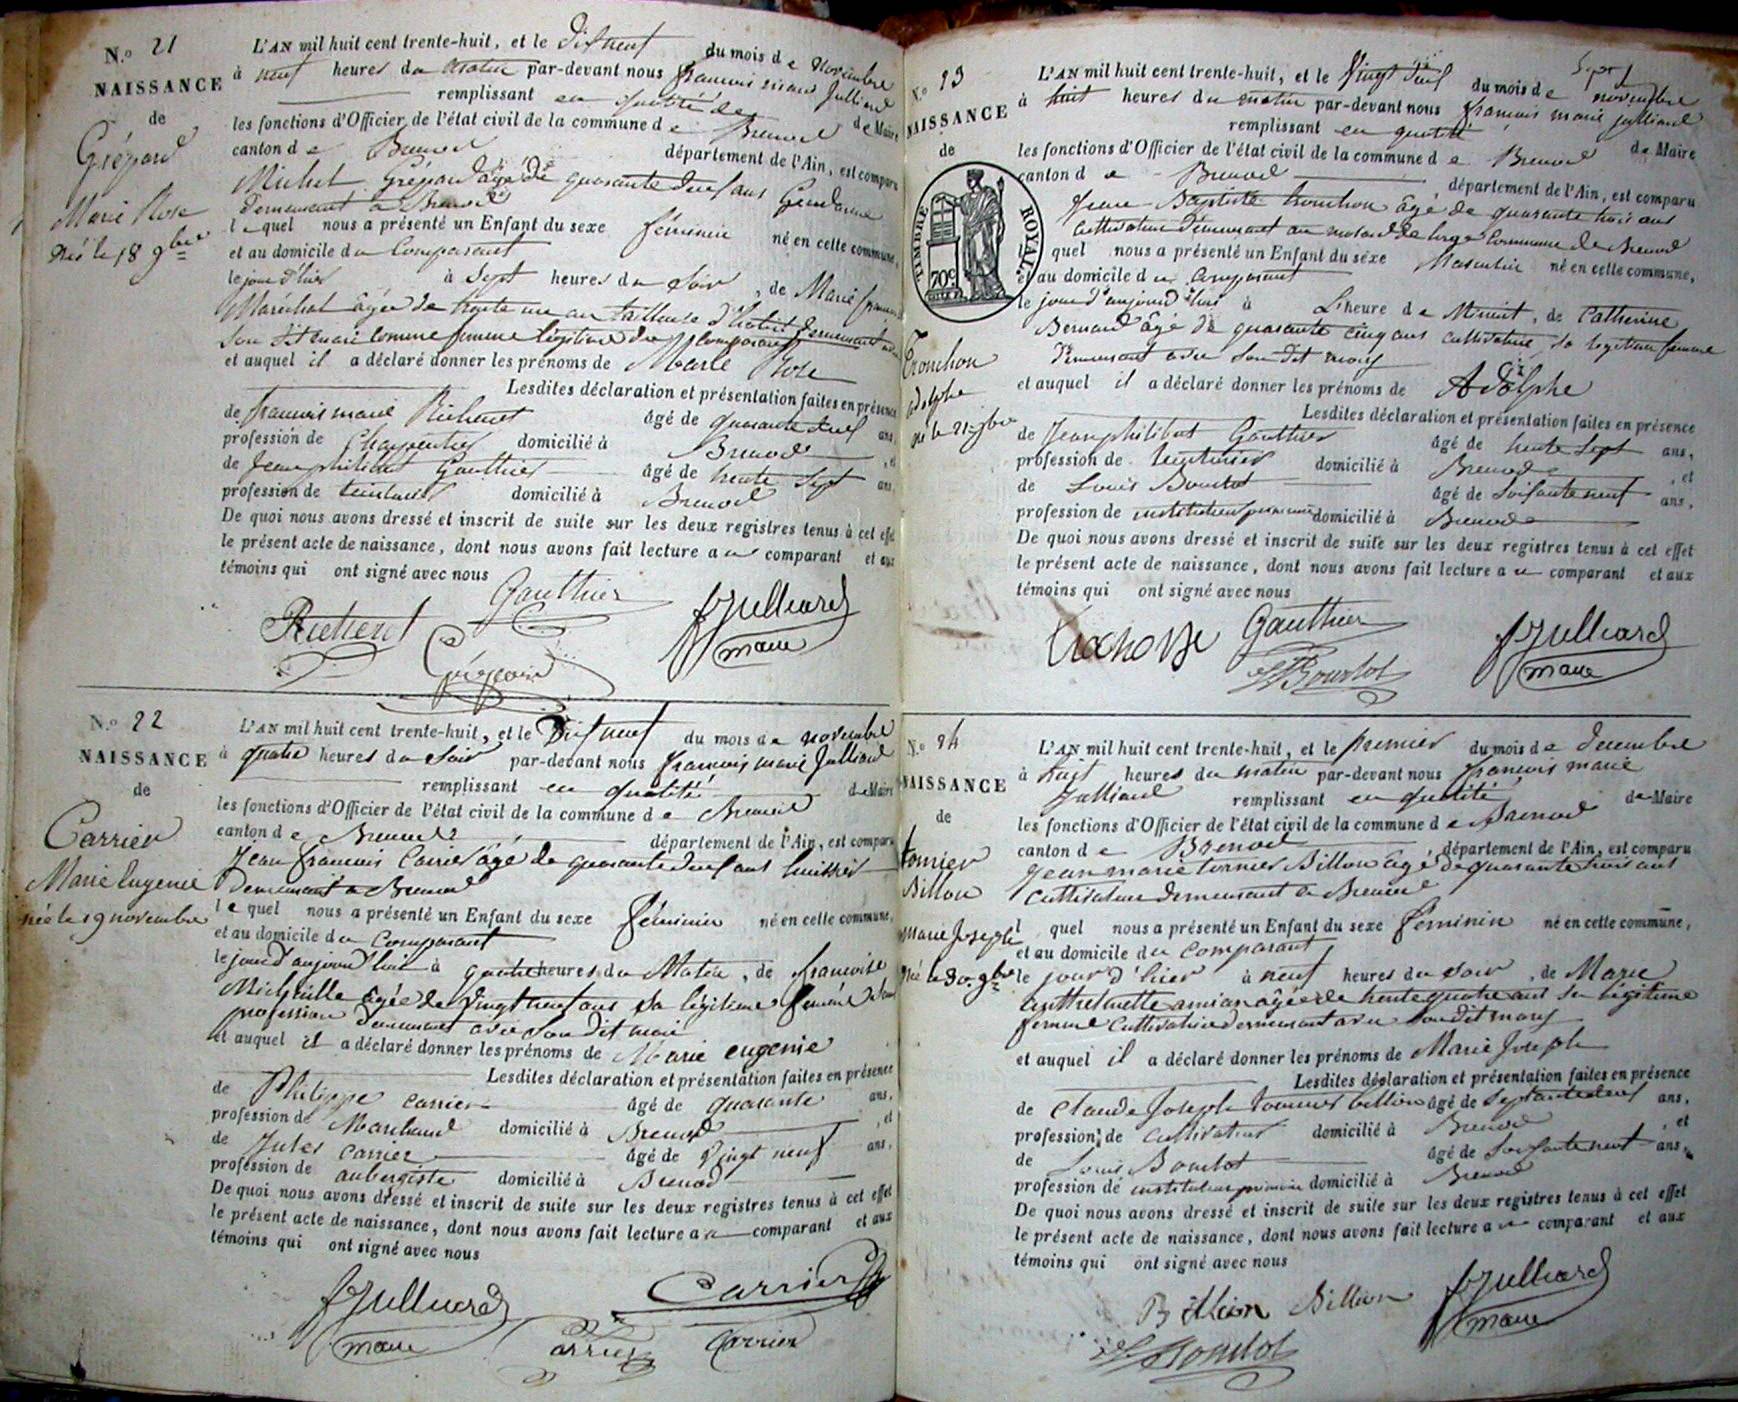 N.o 21
NAISSANCE
de
Grépard
Marie Rose
Née le 18 9bre
L'AN mil huit cent trente-huit, et le dixneuf du mois de novembre
à neuf heures du matin par-devant nous françois marie Julliard
remplissant en qualité de de Maire
les fonctions d'Officier de l'état civil de la commune de Brenod
canton de Brenod département de l'Ain, est comparu
Michel Grépard âgé de quarante deux ans Gendarme
demeurant à Brenod
lequel nous a présenté un Enfant du sexe féminin né en cette commune,
et au domicile du Comparant
le jour d'hier à Sept heures du Soir, de Marie
Maréchal âgée de trente un an tailleuse d'habit demeurant
Son dit mari comme femme légitime du comparant
et auquel il a déclaré donner les prénoms de Marie Rose
Lesdites déclaration et présentation faites en présence
de françois marie Richerot âgé de quarante deux ans,
profession de Charpentier domicilié à Brenod, et
de Jean philibert Gauthier âgé de trente Sept ans,
profession de teinturier domicilié à Brenod
De quoi nous avons dressé et inscrit de suite sur les deux registres tenus à cet effet
le présent acte de naissance, dont nous avons fait lecture au comparant et aux
témoins qui ont signé avec nous
Gauthier
fJulliard
maire
N.o 22
NAISSANCE
de
Carrier
Marie Eugenie
née le 19 novembre
L'AN mil huit cent trente-huit, et le Dixneuf du mois de novembre
à quatre heures du Soir par-devant nous françois marie Julliard
remplissant en qualité de Maire
les fonctions d'Officier de l'état civil de la commune de Brenod
canton de Brenod département de l'Ain, est comparu
Jean françois Carrier âgé de quarante deux ans huissier
demeurant à Brenod
lequel nous a présenté un Enfant du sexe féminin né en cette commune,
et au domicile du Comparant
le jour d'aujourd'hui à quatre heures du Matin, de françoise
Michville âgée de vingt neuf ans sa légitime femme sans
profession demeurant avec son dit mari
et auquel il a déclaré donner les prénoms de Marie eugenie
Lesdites déclaration et présentation faites en présence
de Philippe carrier âgé de quarante ans,
profession de Marchand domicilié à Brenod, et
de Jules carrier âgé de Vingt neuf ans,
profession de aubergiste domicilié à Brenod
De quoi nous avons dressé et inscrit de suite sur les deux registres tenus à cet effet
le présent acte de naissance, dont nous avons fait lecture au comparant et aux
témoins qui ont signé avec nous
fJulliard
maire
Carrier
Carrier
Carrier
N.o 23
NAISSANCE
de
TIMBRE ROYAL
70c
Tronchon
adolphe
né le 22 9bre
L'AN mil huit cent trente-huit, et le Vingt deux du mois de novembre
à huit heures du matin par-devant nous françois marie julliard
remplissant en qualité de Maire
les fonctions d'Officier de l'état civil de la commune de Brenod
canton de Brenod département de l'Ain, est comparu
Jean Baptiste tronchon âgé de quarante trois ans
cultivateur demeurant au commune de Brenod
quel nous a présenté un Enfant du sexe Masculin né en cette commune,
et au domicile du comparant
le jour d'aujourd'hui à L'heure de Minuit, de Catherine
Bernard âgé de quarante cinq ans cultivatrice sa légitime femme
demeurant avec son dit mary
et auquel il a déclaré donner les prénoms de Adolphe
Lesdites déclaration et présentation faites en présence
de Jean philibert Gauthier âgé de trente Sept ans,
profession de teinturier domicilié à Brenod, et
de Louis Bourdot âgé de Soixante neuf ans,
profession de instituteur primaire domicilié à Brenod
De quoi nous avons dressé et inscrit de suite sur les deux registres tenus à cet effet
le présent acte de naissance, dont nous avons fait lecture au comparant et aux
témoins qui ont signé avec nous
Gauthier
Bourdot
fJulliard
maire
N.o 24
NAISSANCE
de
tornier
Billon
Marie Joseph
née le 30 9bre
L'AN mil huit cent trente-huit, et le premier du mois de decembre
à huit heures du matin par-devant nous françois marie
Julliard remplissant en qualité de Maire
les fonctions d'Officier de l'état civil de la commune de Brenod
canton de Brenod, département de l'Ain, est comparu
Jean marie tornier Billon âgé de quarante trois ans
cultivateur demeurant à Brenod
l quel nous a présenté un Enfant du sexe féminin né en cette commune,
et au domicile du comparant
le jour d'hier à neuf heures du soir, de Marie
anthelmette amian âgée de trente quatre ans sa légitime
femme cultivatrice demeurant avec son dit mary
et auquel il a déclaré donner les prénoms de Marie Joseph
Lesdites déclaration et présentation faites en présence
de Claude Joseph tournier billion âgé de Septante deux ans,
profession de cultivateur domicilié à Brenod, et
de Louis Bourdot âgé de Soixante neuf ans,
profession de instituteur primaire domicilié à Brenod
De quoi nous avons dressé et inscrit de suite sur les deux registres tenus à cet effet
le présent acte de naissance, dont nous avons fait lecture au comparant et aux
témoins qui ont signé avec nous
Billion Billion
Bourdot
fJulliard
maire